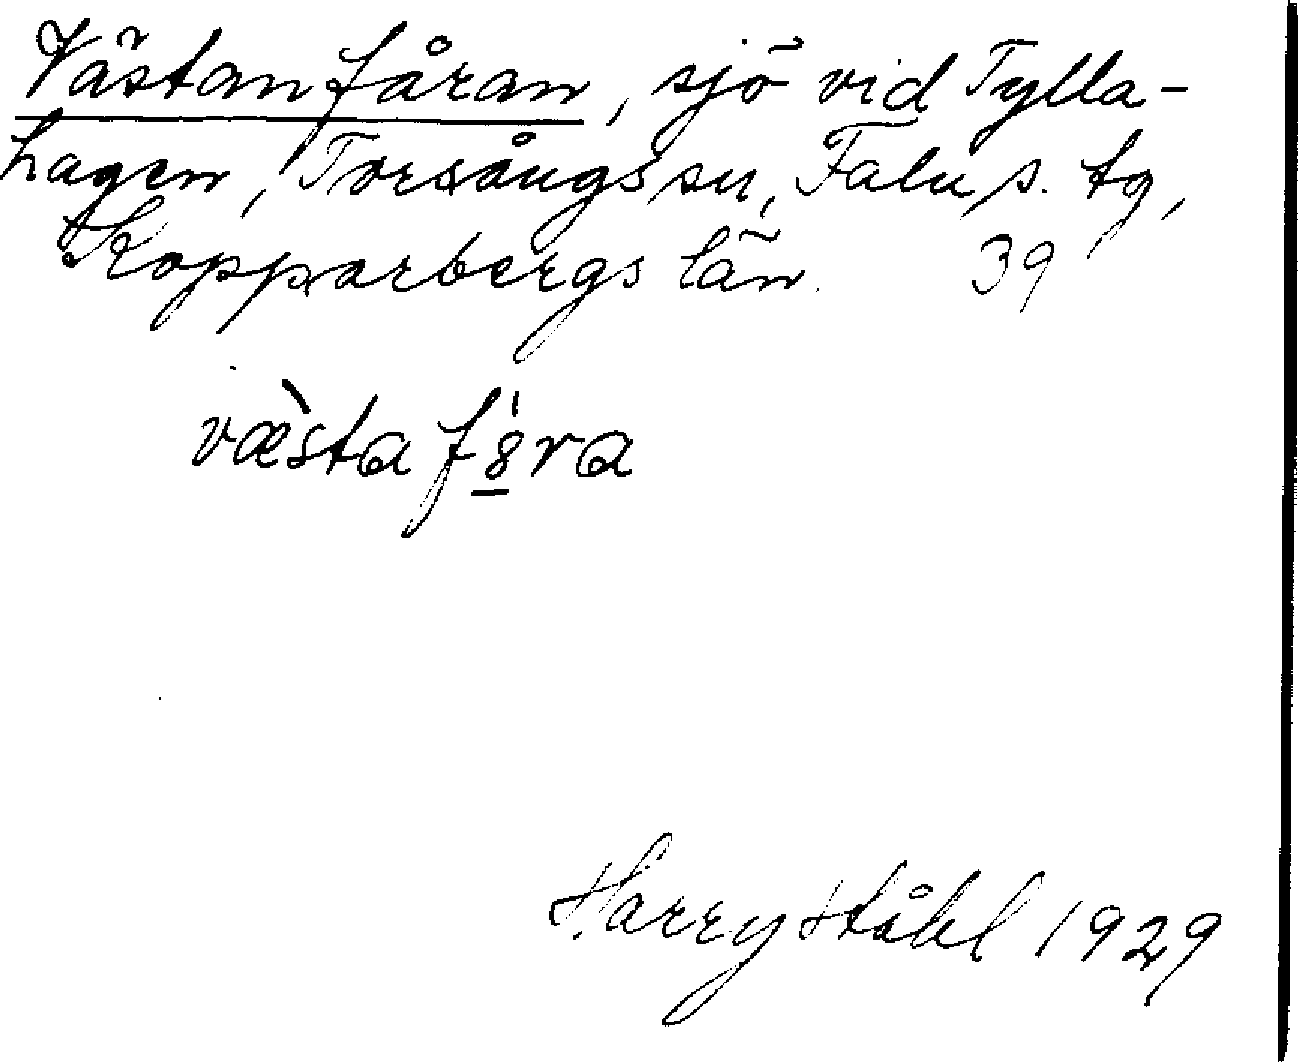 Västanfåran, sjö vid Tylla-
hagen, Torsångs sn, Falu s. tg,
Kopparbergs län. 39
væ̀sta f8̲́ra
Harry Ståhl 1929